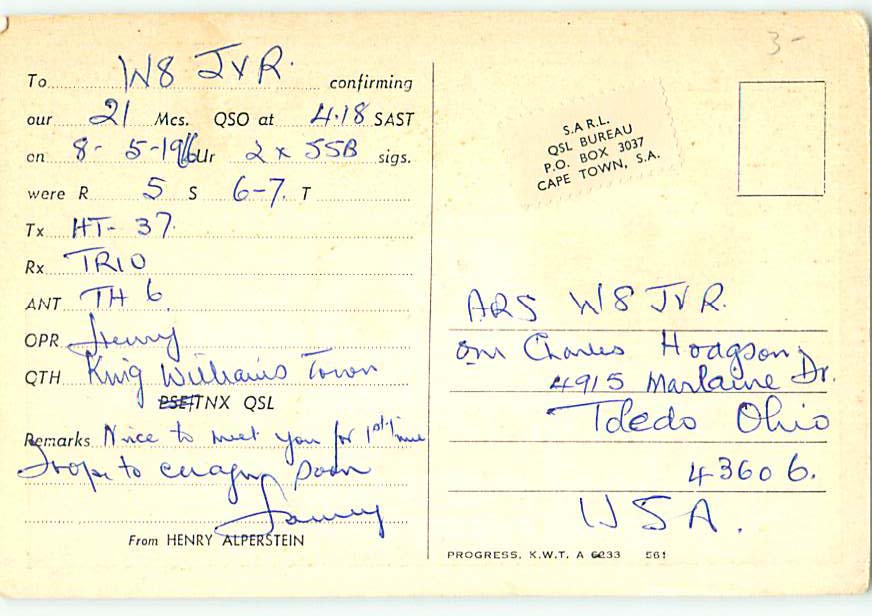 To W8 JVR. confirming
our 21 Mcs. QSO at 4.18 SAST
on 8- 5-1966 Ur 2 x SSB sigs.
were R 5 S 6-7. T
Tx HT- 37.
Rx TRIO
ANT TH 6.
OPR Henry
QTH King Williams Town
PSE/TNX QSL
Remarks Nice to meet you for 1st time
Hope to cuagn soon
Henry
From HENRY ALPERSTEIN
3-
S.A.R.L.
QSL BUREAU
P.O. BOX 3037
CAPE TOWN, S.A.
ARS W8 JVR.
om Charles Hodgson,
4915 Marlaine Dr.
Toledo Ohio
43606.
USA.
PROGRESS, K.W.T. A 6233 561